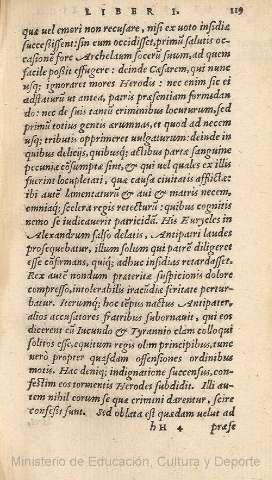 LIBER I. 119
quæ vel emori non recusare, nisi ex uoto insidiæ
successissent: sin eum occidisset, primũ salutis oc-
casionẽ fore Archelaum socerũ suum, ad quem
facile possit effugere: deinde Cæsarem, qui nunc
usq; ignoraret mores Herodis: nec enim sic ei
adstaturũ ut antea, patris præsentiam formidan
do: nec de suis tantũ criminibus locuturum, sed
primũ totius gentis ærumnas, et quod ad necem
usq; tributis opprimeret uulgaturum: deinde in
quibus delicijs, quibusq; actibus parta sanguine
pecunia cõsumptæ sint, & qui vel quales ex illis
fuerint locupletati, quæ causa ciuitatis afflictæ:
ibi autẽ lamentaturũ & aui & matris necem,
omniaq; scelera regis retecturũ: quibus cognitis
nemo se iudicauerit patricidã. His Euryeles in
Alexandrum falso delatis, Antipatri laudes
prosequebatur, illum solum qui patrẽ diligeret
esse cõfirmans, quiq; adhuc insidias retardasset.
Rex autẽ nondum præteritæ suspicionis dolore
compresso, intolerabilis iracũdiæ seritate pertur-
batur. Iterumq; hoc tẽpus nactus Antipater,
alios accusatores fratribus subornauit, qui eos
dicerent cũ Iucundo & Tyrannio clam colloqui
solitos esse, equitum regis olim principibus, tunc
verò propter quasdam offensiones ordinibus
motis. Hac deniq; indignatione succensus, con-
festim eos tormentis Herodes subdidit. Illi au-
tem nihil eorum se que crimini darentur, scire
confessi sunt. Sed oblata est quædam uelut ad
hH 4 præfe
Ministerio de Educación, Cultura y Deporte